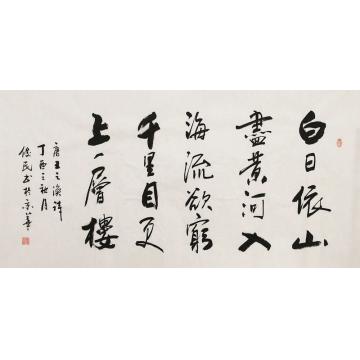 白日依山
盡黄河入
海流欲窮
千里目更
上一層樓
唐王之渙詩
丁酉之秋月
俊民书於京華